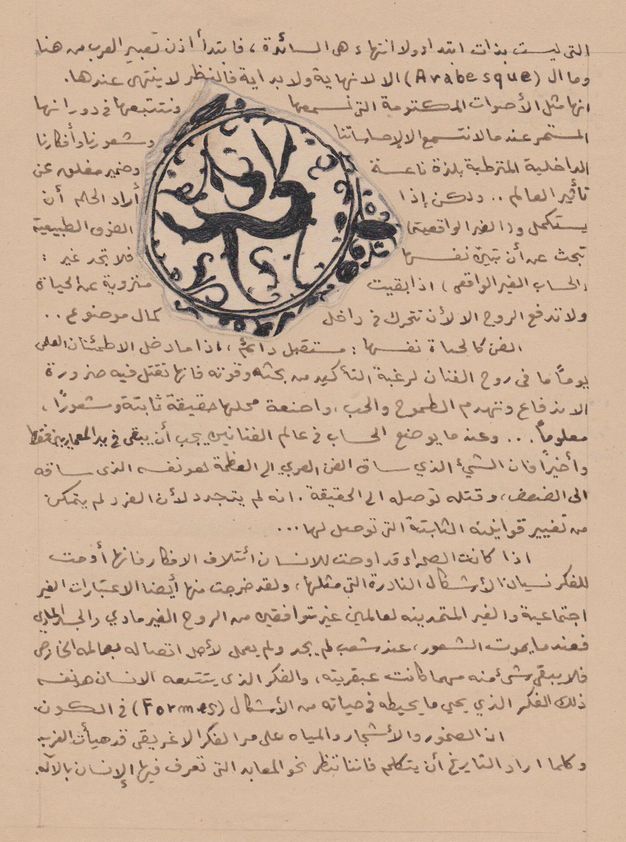 التي ليست بذات ابتداء ولا انتهاء هي السائدة ، فابتدأ اذن تعبير العرب من هنا
وما ال (Arabesque) الا لانهاية ولا بداية فالنظر لا ينتهي عندها.
انها مثل الأصوات المكتومة التي نسمعها ونتتبعها في دورانها
المستمر عندما لا نستمع الا لإحساساتنا وشعورنا وأفكارنا
الداخلية المترطبة بلذة ناعسة وضمير مغلق عن
تأثير العالم .. ولكن إذا أراد الحلم أن
يستكمل و(الغير الواقعية) القوى الطبيعية
تبحث عن أن تبين نفسها فلا تجد غير :
(الحساب الغير الواقعي) اذا بقيت منزوية عن الحياة
ولا تدفع الروح الا لأن تتحرك في داخل كمال موضوع ..
الفن كالحياة نفسها : مستقبل دائم ، اذا ما دخل الاطمئنان العلمي
يوماً ما في روح الفنان لرغبة التأكيد من بحثه وقوته فانها تقتل فيه ضرورة
الاندفاع وتهدم الطموح والحب ، واضعة محلها حقيقة ثابتة وشعوراً ،
معلوماً ... وعند ما يوضع الحساب في عالم الفنانين يجب أن يبقى في يد المعماريين فقط
وأخيراً فان الشيء الذي ساق الفن العربي الى العظمة لهو نفسه الذي ساقه
الى الضعف ، وقتله توصله الى الحقيقة . انه لم يتجدد لأن الفرد لم يتمكن
من تغيير قوانينه الثابتة التي توصل لها ...
اذا كانت الصحراء قد اوحت للانسان ائتلاف الافكار فانها أوحت
للفكر نسيان الأشكال النادرة التي مثلها ، ولقد خرجت منها أيضا الاعتبارات الغير
اجتماعية والغير المتمدينه لعالمين غير متوافقين من الروح الغير مادي والجسد المادي
فعندما يموت الشعور ، عند شعب لم يجد ولم يعمل لأجل اتصاله بعالمه الخارجي
فلا يبقى شيء منه مهما كانت عبقريته ، والفكر الذي يتتبعه الانسان هو نفسه
ذلك الفكر الذي يحيي ما يحيطه في حياته من الأشكال (Formes) في الكون.
ان الصخور والأشجار والمياه على مر الفكر الاغريقي قد هيأت الغرب
وكلما اراد التاريخ أن يتكلم فاننا ننظر نحو المعابد التي تعرف فيها الإنسان بالآله.